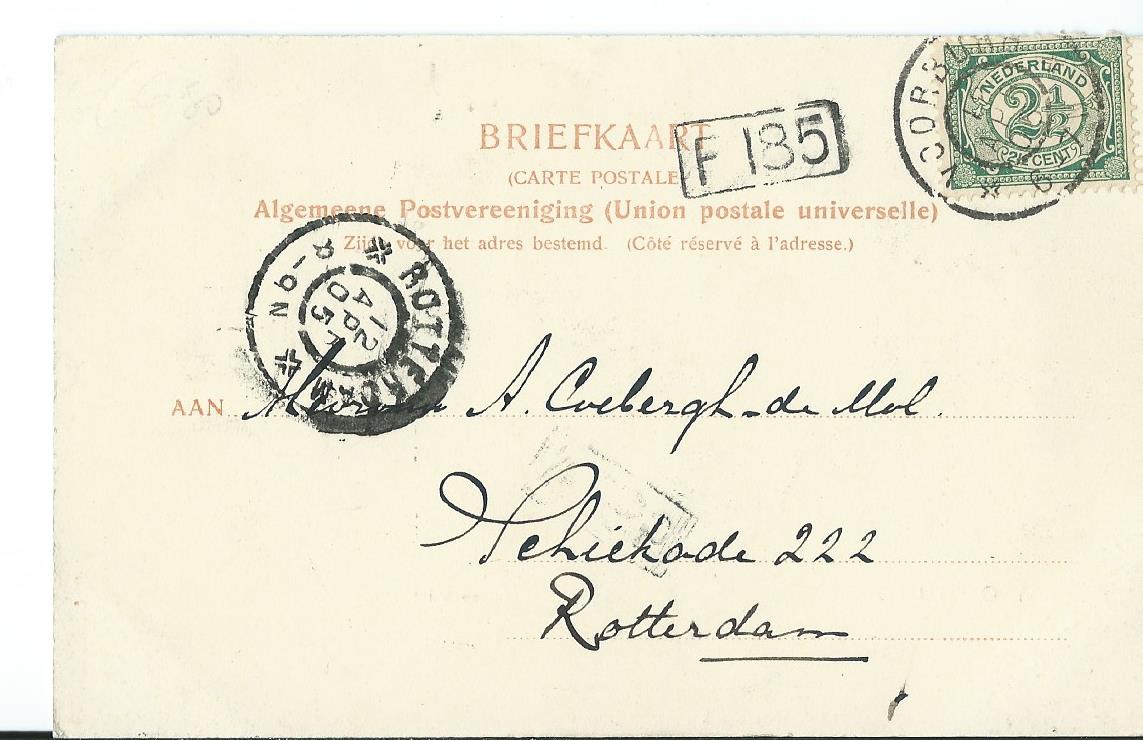 BRIEFKAART
(CARTE POSTALE
Algemeene Postvereeniging (Union postale universelle)
Zijde voor het adres bestemd. (Côté réservé à l'adresse.)
F 185
NEDERLAND
2½
2½ CENT
ROTTERDAM
8-9N
12
AP
05
AAN Mevrouw A. Coebergh-de Mol.
Schiekade 222
Rotterdam